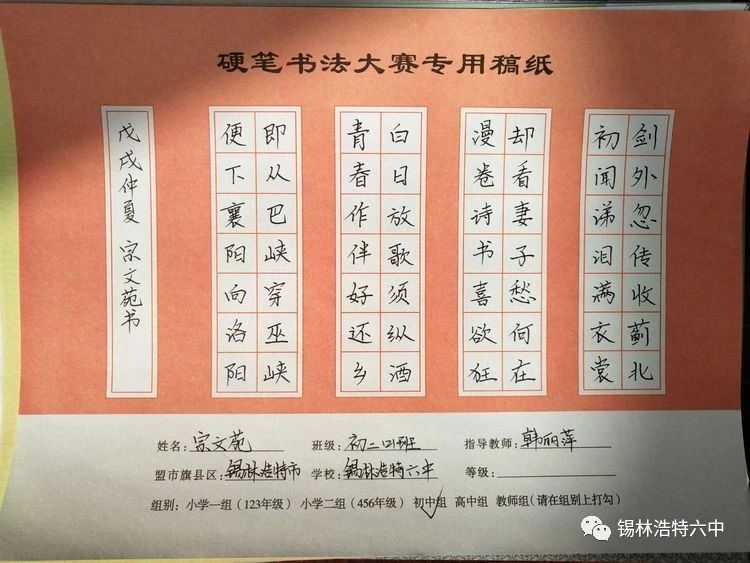 硬笔书法大赛专用稿纸
剑外忽传收蓟北
初闻涕泪满衣裳
却看妻子愁何在
漫卷诗书喜欲狂
白日放歌须纵酒
青春作伴好还乡
即从巴峡穿巫峡
便下襄阳向洛阳
戊戌仲夏 宗文苑书
姓名:宗文苑 班级:初二121班 指导教师:韩丽萍
盟市旗县区:锡林浩特市 学校:锡林浩特六中 等级:
组别:小学一组(123年级) 小学二组(456年级) 初中组 高中组 教师组(请在组别上打勾)
锡林浩特六中